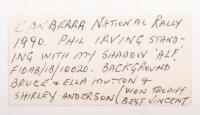 CANBERRA NATIONAL RALLY
1990. PHIL IRVING STAND-
ING WITH MY SHADOW 'ALF.'
F10AB/1B/10020. BACKGROUND
BRUCE & ELLA MUTTON &
SHIRLEY ANDERSON / WON TROPHY
BEST VINCENT